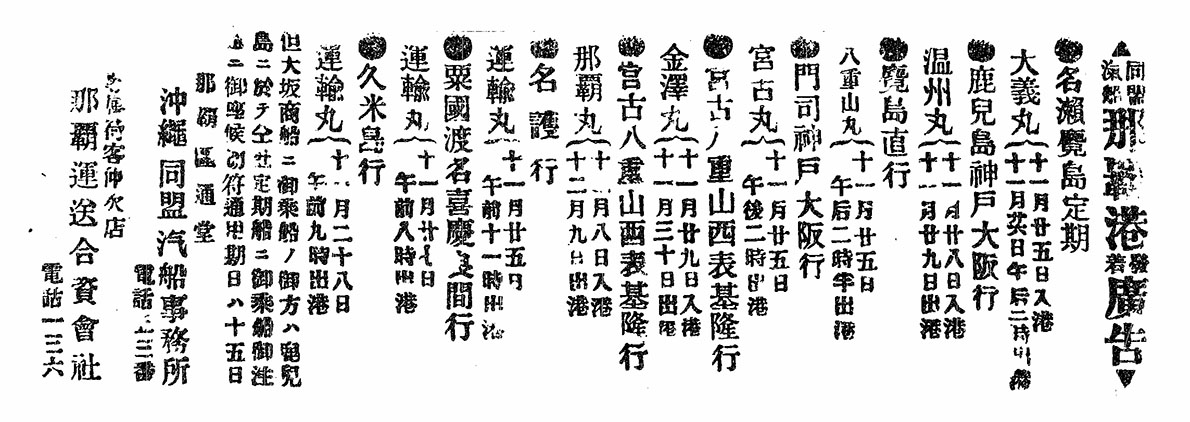 同盟汽船那覇港發着廣告
●名瀬覽島定期
大義丸 十一月廿五日入港
十一月廿六日午后二時出港
●鹿兒島神戸大阪行
温州丸 十一月廿八日入港
十一月廿九日出港
●覽島直行
八重山丸 十一月廿五日
午后二時半出港
●門司神戸大阪行
宮古丸 十一月廿五日
午後二時出港
●宮古八重山西表基隆行
金澤丸 十一月廿九日入港
十一月三十日出港
●宮古八重山西表基隆行
那覇丸 十二月八日入港
十二月九日出港
●名護行
運輸丸 十一月廿五日
午前十一時出港
●粟國渡名喜慶良間行
運輸丸 十一月廿七日
午前八時出港
●久米島行
運輸丸 十一月二十八日
午前九時出港
但大坂商船ニ御乘船ノ御方ハ鹿兒
島ニ於テ仝社定期船ニ御乘船御注
意ニ御座候 切符通用期日ハ十五日
那覇區通堂
沖繩同盟汽船事務所
電話 三番
荷客仲次店
那覇運送合資會社
電話一三六